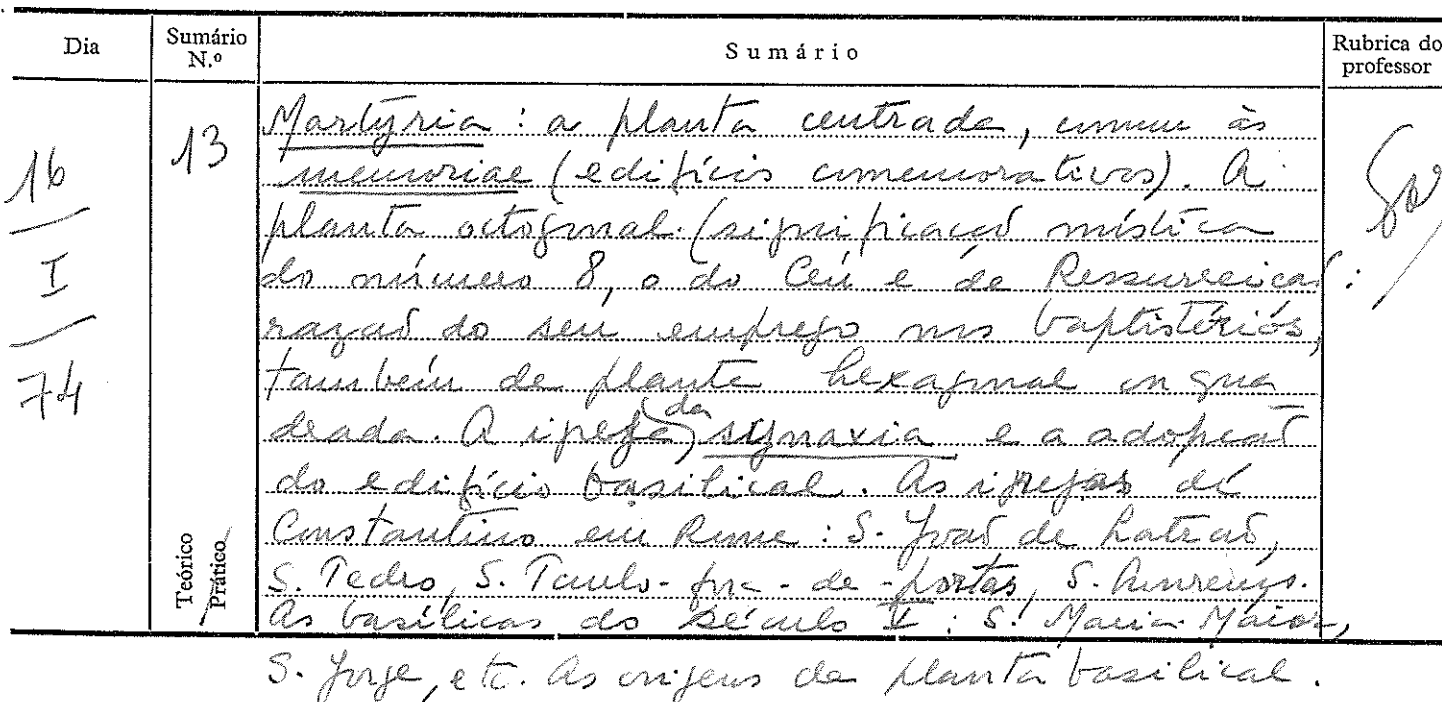 Dia
Sumário N.º
Sumário
Rubrica do professor
16
I
74
13
Teórico
Prático
Martyria: a planta centrada, comum às
memoriae (edifícios comemorativos). A
planta octogonal. (significação mística
do número 8, o do Céu e da Ressurreição:
razão do seu emprego nos baptistérios,
também de planta hexagonal ou qua
drada. A igreja da synaxia e a adopção
do edifício basilical. As igrejas de
Constantino em Roma: S. João de Latrão,
S. Pedro, S. Paulo-fora-de-portas, S. Lourenço.
As basílicas do século V: S. Maria Maior,
S. Jorge, etc. As origens da planta basilical.